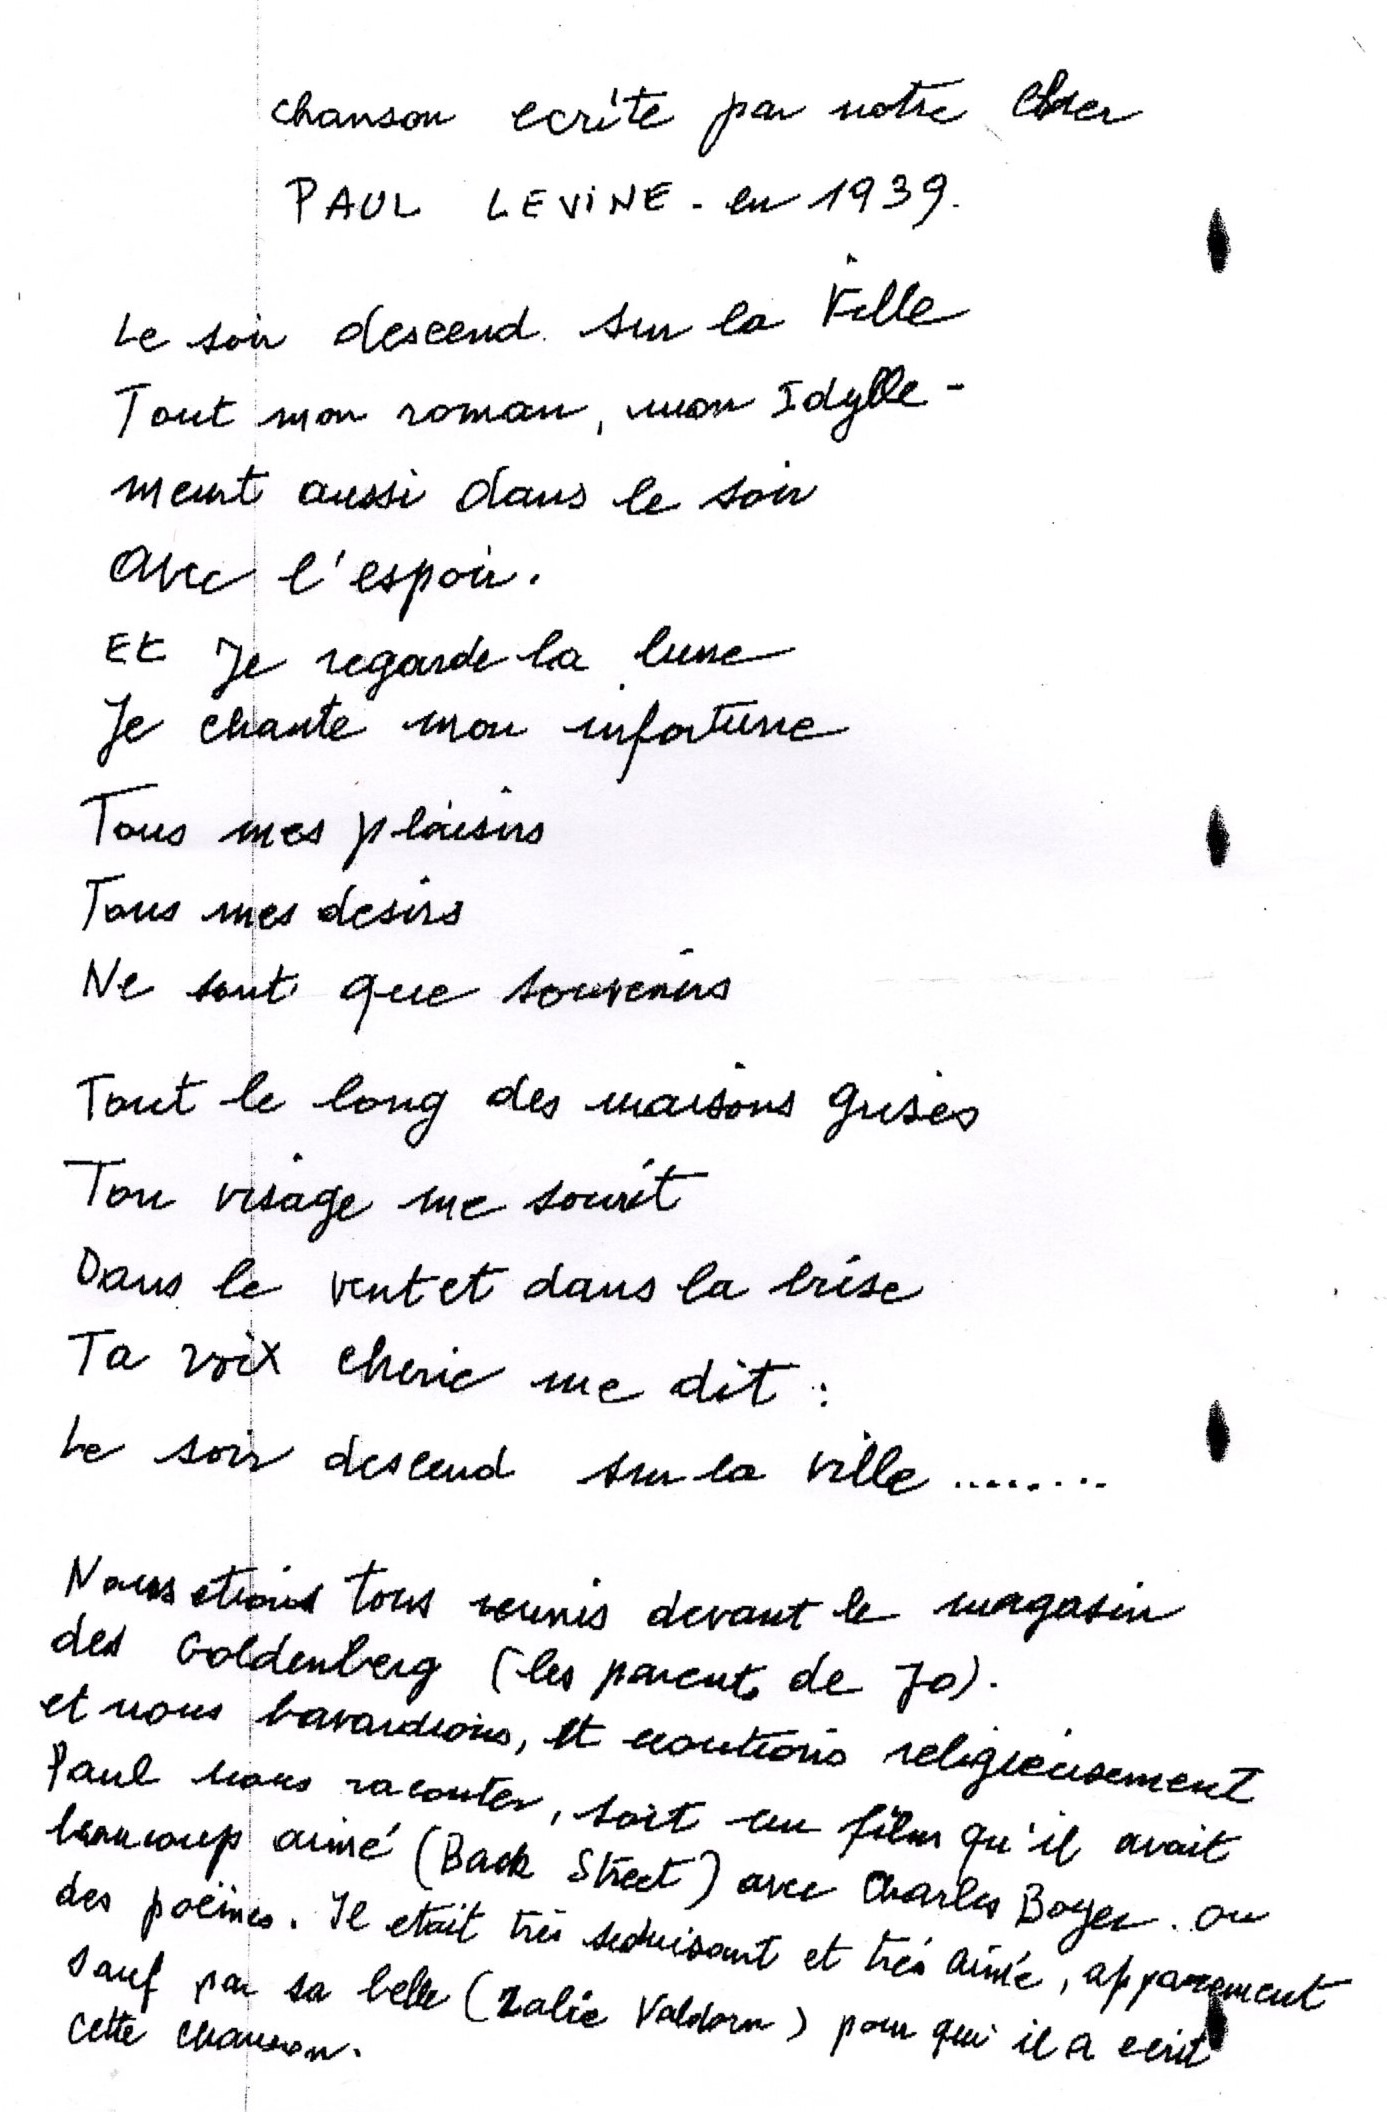 chanson ecrite par notre cher
PAUL LEVINE - en 1939.
Le soir descend sur la Ville
Tout mon roman, mon Idylle -
meurt aussi dans le soir
avec l'espoir.
Et Je regarde la lune
Je chante mon infortune
Tous mes plaisirs
Tous mes desirs
Ne sont que souvenirs
Tout le long des maisons grises
Ton visage me sourit
Dans le vent et dans la brise
Ta voix cherie me dit :
Le soir descend sur la ville ........
Nous etions tous reunis devant le magasin
des Goldenberg (les parents de Jo).
et nous bavardions, et ecoutions religieusement
Paul nous raconter, soit un film qu'il avait
beaucoup aimé (Back Street) avec Charles Boyer. ou
des poëmes. Il etait très seduisant et très aimé, apparement
sauf par sa belle (Zalie Valdorn) pour qui il a ecrit
cette chanson.